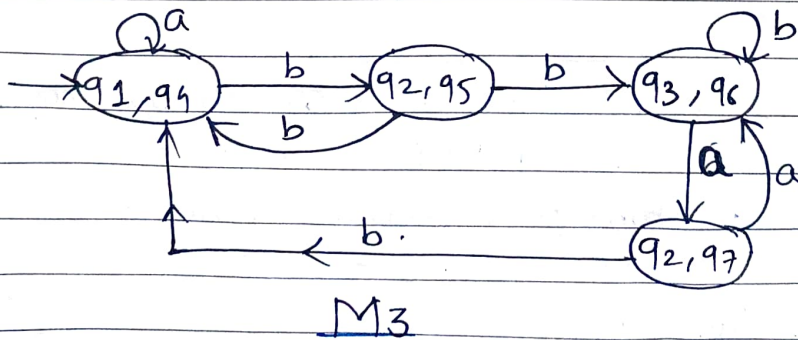 a
b
q1, q4
b
q2, q5
b
q3, q6
b
a
a
b.
q2, q7
M3